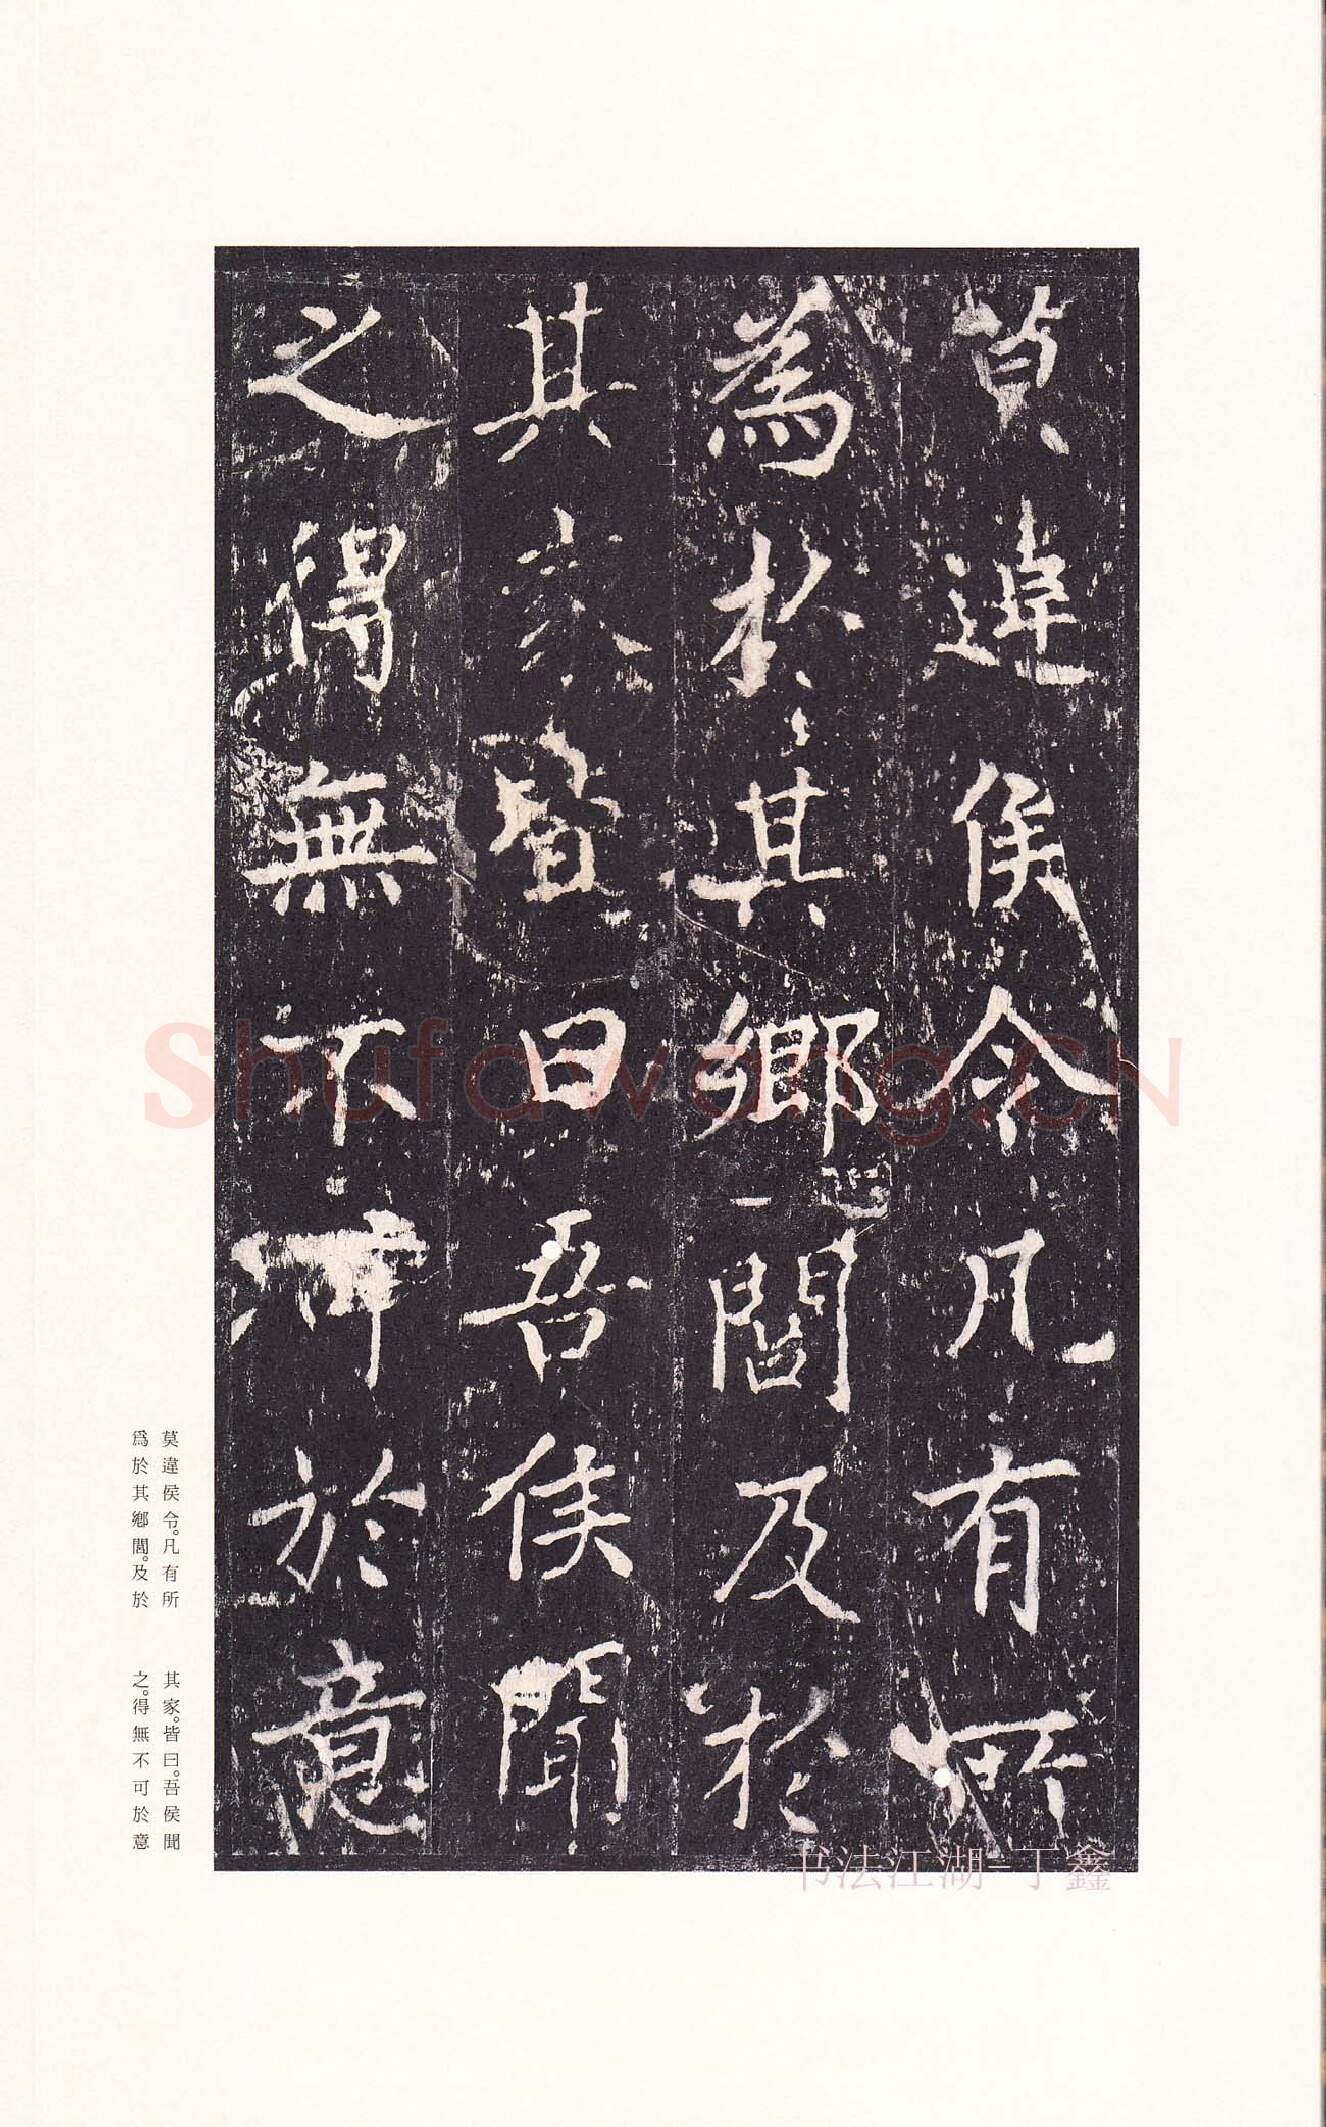 莫違侯令凡有所
為於其鄉閭及於
其家皆曰吾侯聞
之得無不可於意
莫違侯令。凡有所
爲於其鄉閭。及於
其家。皆曰。吾侯聞
之。得無不可於意
Shufawang.CN
书法江湖=丁鑫